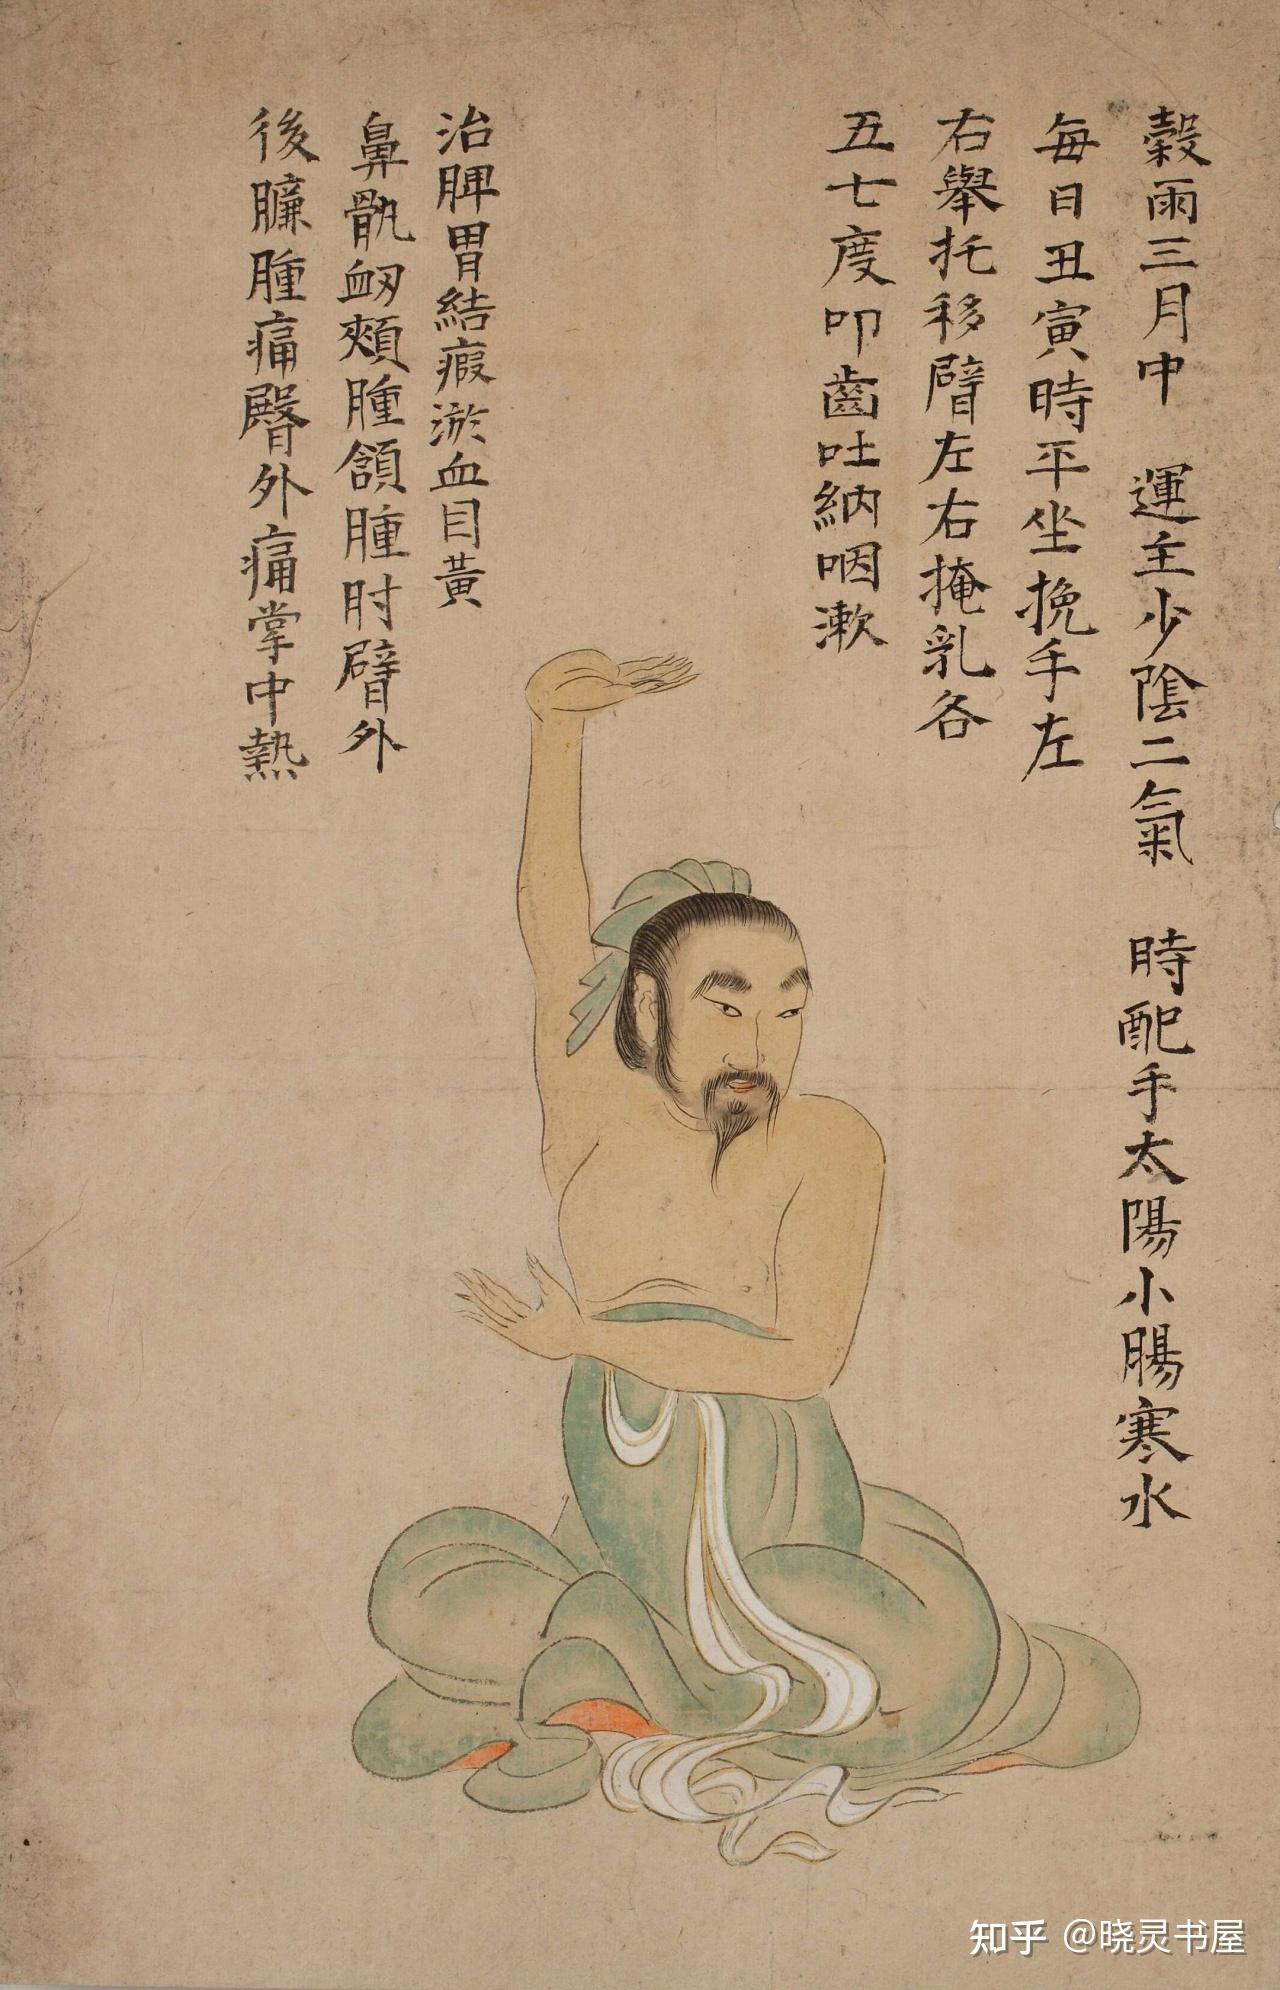 穀雨三月中 運主少陰二氣 時配手太陽小腸寒水
每日丑寅時平坐挽手左
右舉托移臂左右掩乳各
五七度叩齒吐納咽漱
治脾胃結瘕淤血目黃
鼻鼽衂頰腫頷腫肘臂外
後臁腫痛臀外痛掌中熱
知乎 @晓灵书屋